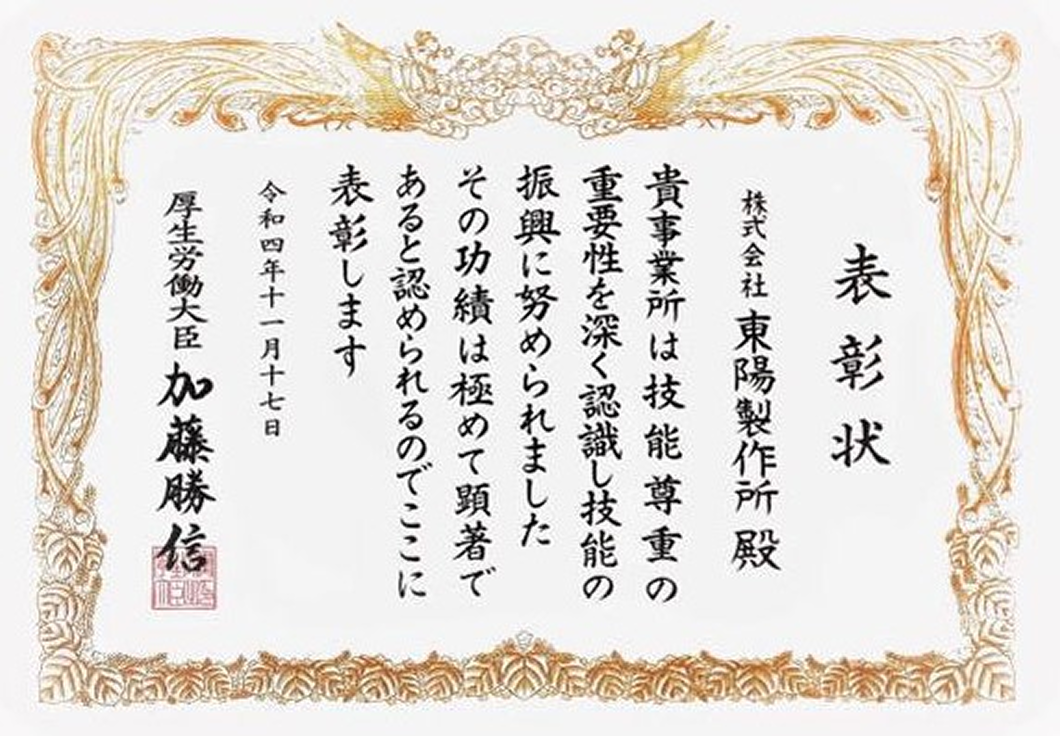 表彰状
株式会社 東陽製作所 殿
貴事業所は技能尊重の
重要性を深く認識し技能の
振興に努められました
その功績は極めて顕著で
あると認められるのでここに
表彰します
令和四年十一月十七日
厚生労働大臣 加藤勝信